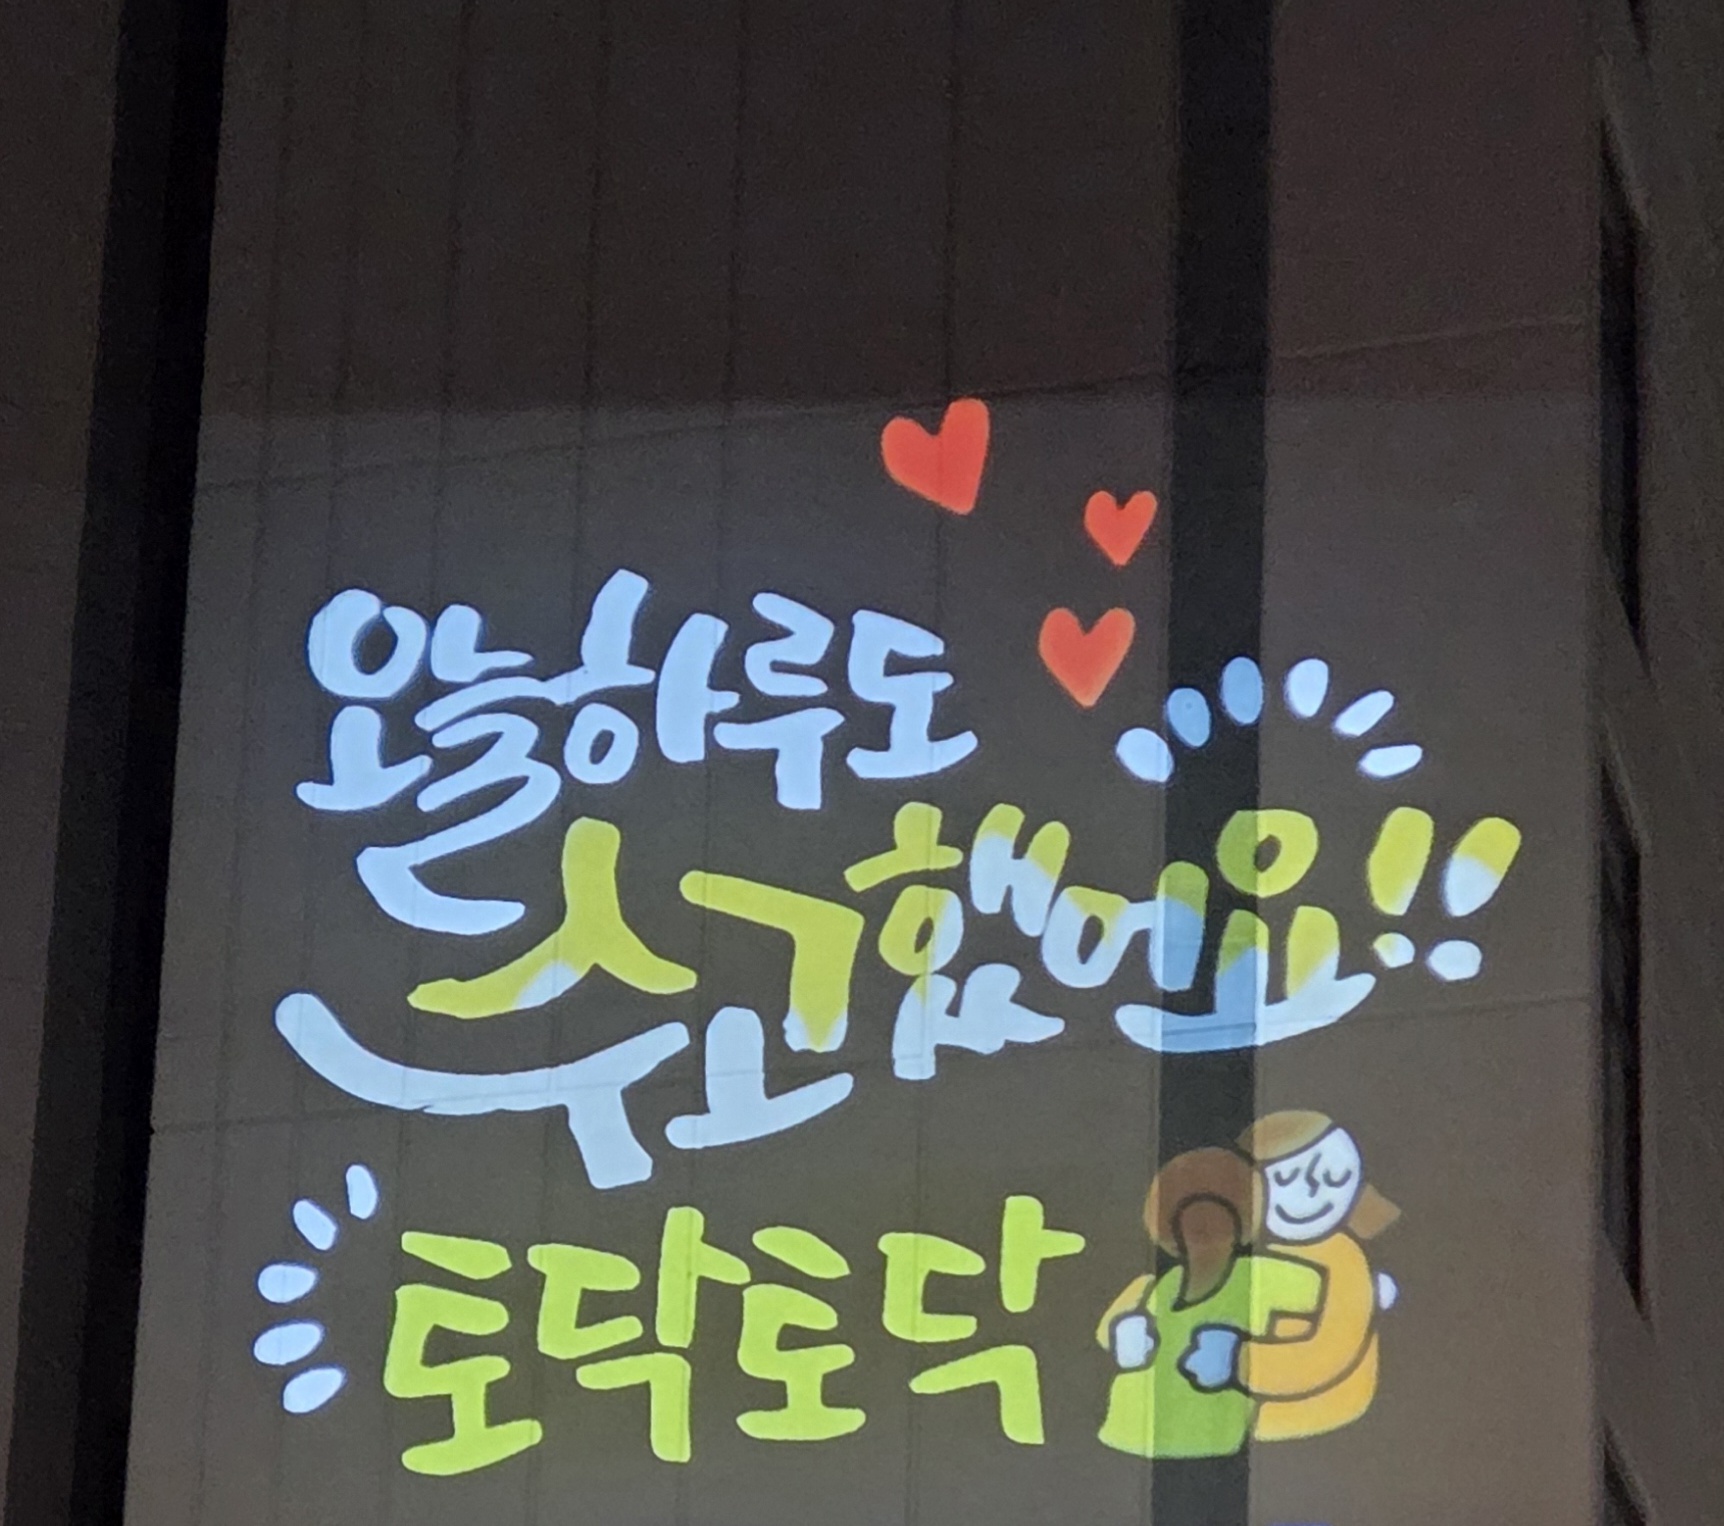 오늘하루도
수고했어요!!
토닥토닥